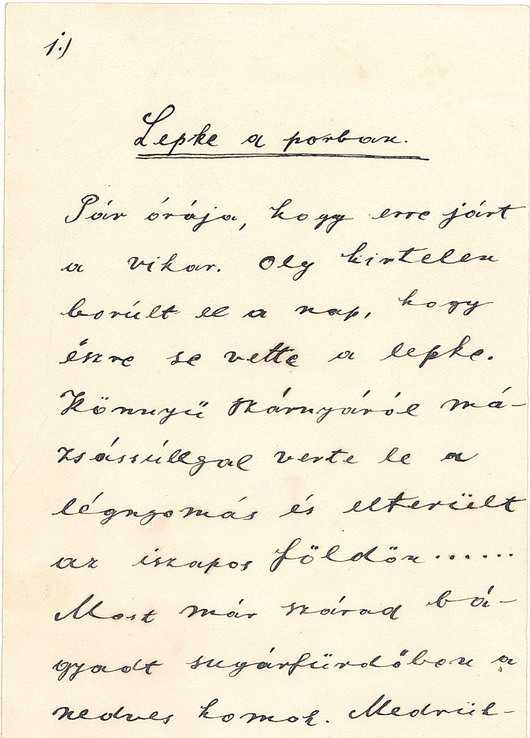 1.)
Lepke a porban.
Pár órája, hogy erre járt
a vihar. Oly hirtelen
borúlt el a nap, hogy
észre se vette a lepke.
Könnyü szárnyáról má-
zsássúllyal verte le a
légnyomás és elterült
az iszapos földön......
Most már szárad bá-
gyadt sugárfürdőben a
nedves homok. Medrük-